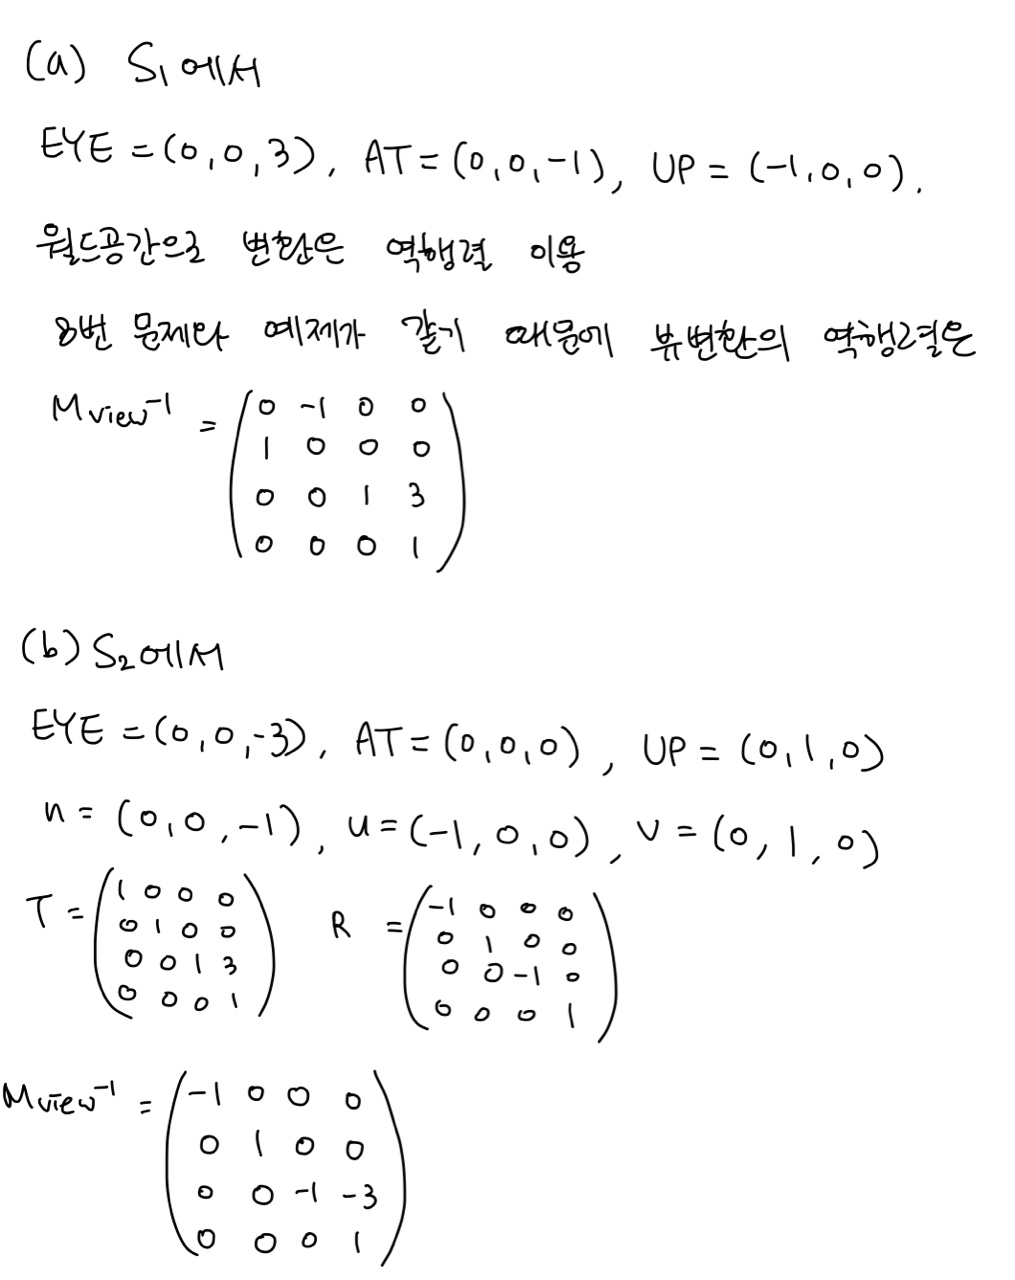 (a) S₁에서
EYE = (0,0,3), AT = (0,0,-1), UP = (-1,0,0).
월드공간으로 변환은 역행렬 이용
8번 문제와 예제가 같기 때문에 뷰변환의 역행렬은
Mview⁻¹ = ( 0 -1 0 0
1 0 0 0
0 0 1 3
0 0 0 1 )
(b) S₂에서
EYE = (0,0,-3), AT = (0,0,0), UP = (0,1,0)
n = (0,0,-1), u = (-1,0,0), v = (0,1,0)
T = ( 1 0 0 0 R = ( -1 0 0 0
0 1 0 0 0 1 0 0
0 0 1 3 0 0 -1 0
0 0 0 1 ) 0 0 0 1 )
Mview⁻¹ = ( -1 0 0 0
0 1 0 0
0 0 -1 -3
0 0 0 1 )